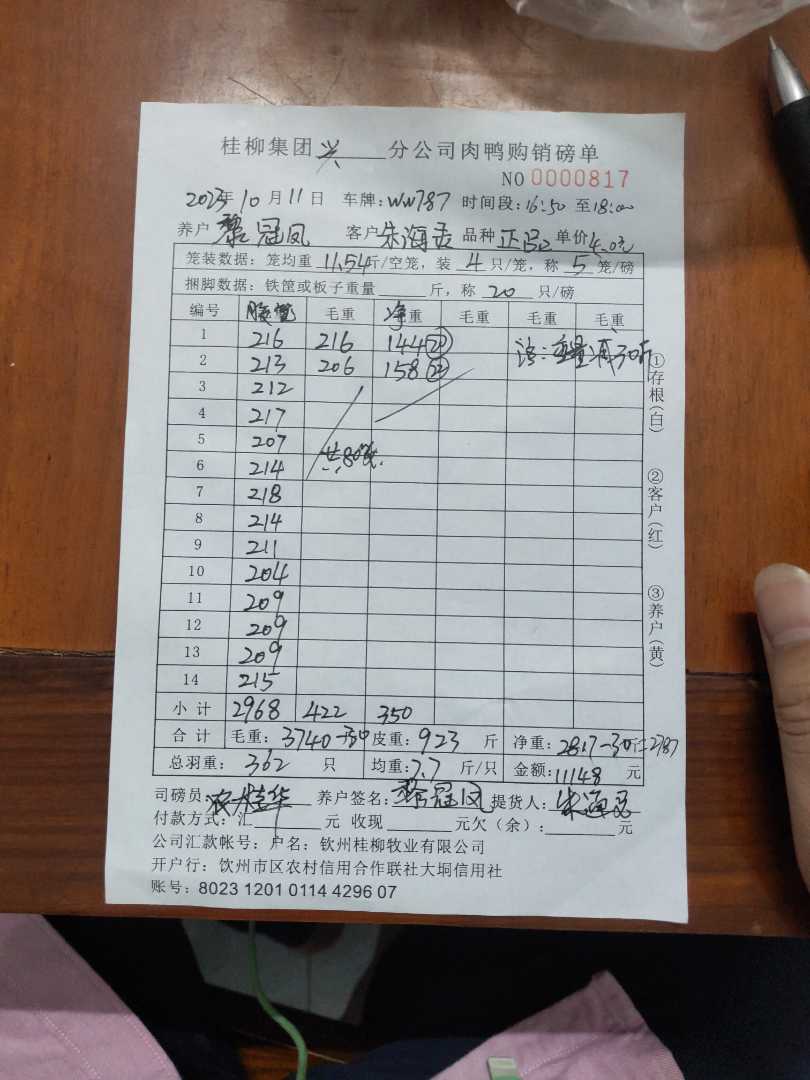 桂柳集团 兴 分公司肉鸭购销磅单
NO 0000817
2023年10月11日 车牌：WW787 时间段：16:50 至18:00
养户 黎冠凤 客户 朱海 品种 正品 单价4.0元
笼装数据：笼均重 11.54斤/空笼，装 4 只/笼，称 5 笼/磅
捆脚数据：铁筐或板子重量 斤，称 20 只/磅
编号 毛重 净重 毛重 毛重 毛重
1 216 216 144 注：重量减30斤
2 213 206 158
3 212
4 217
5 207
6 214 共80笼
7 218
8 214
9 211
10 204
11 209
12 209
13 209
14 215
小计 2968 422 350
合计 毛重：3740 皮重：923 斤 净重：2817-30斤=2787
总羽重：362 只 均重：7.7 斤/只 金额：11148 元
司磅员： 养户签名：黎冠凤 提货人：朱海
付款方式：汇 元 收现 元欠（余）： 元
公司汇款帐号：户名：钦州桂柳牧业有限公司
开户行：饮州市区农村信用合作联社大垌信用社
账号：8023 1201 0114 4296 07
①存根（白）
②客户（红）
③养户（黄）